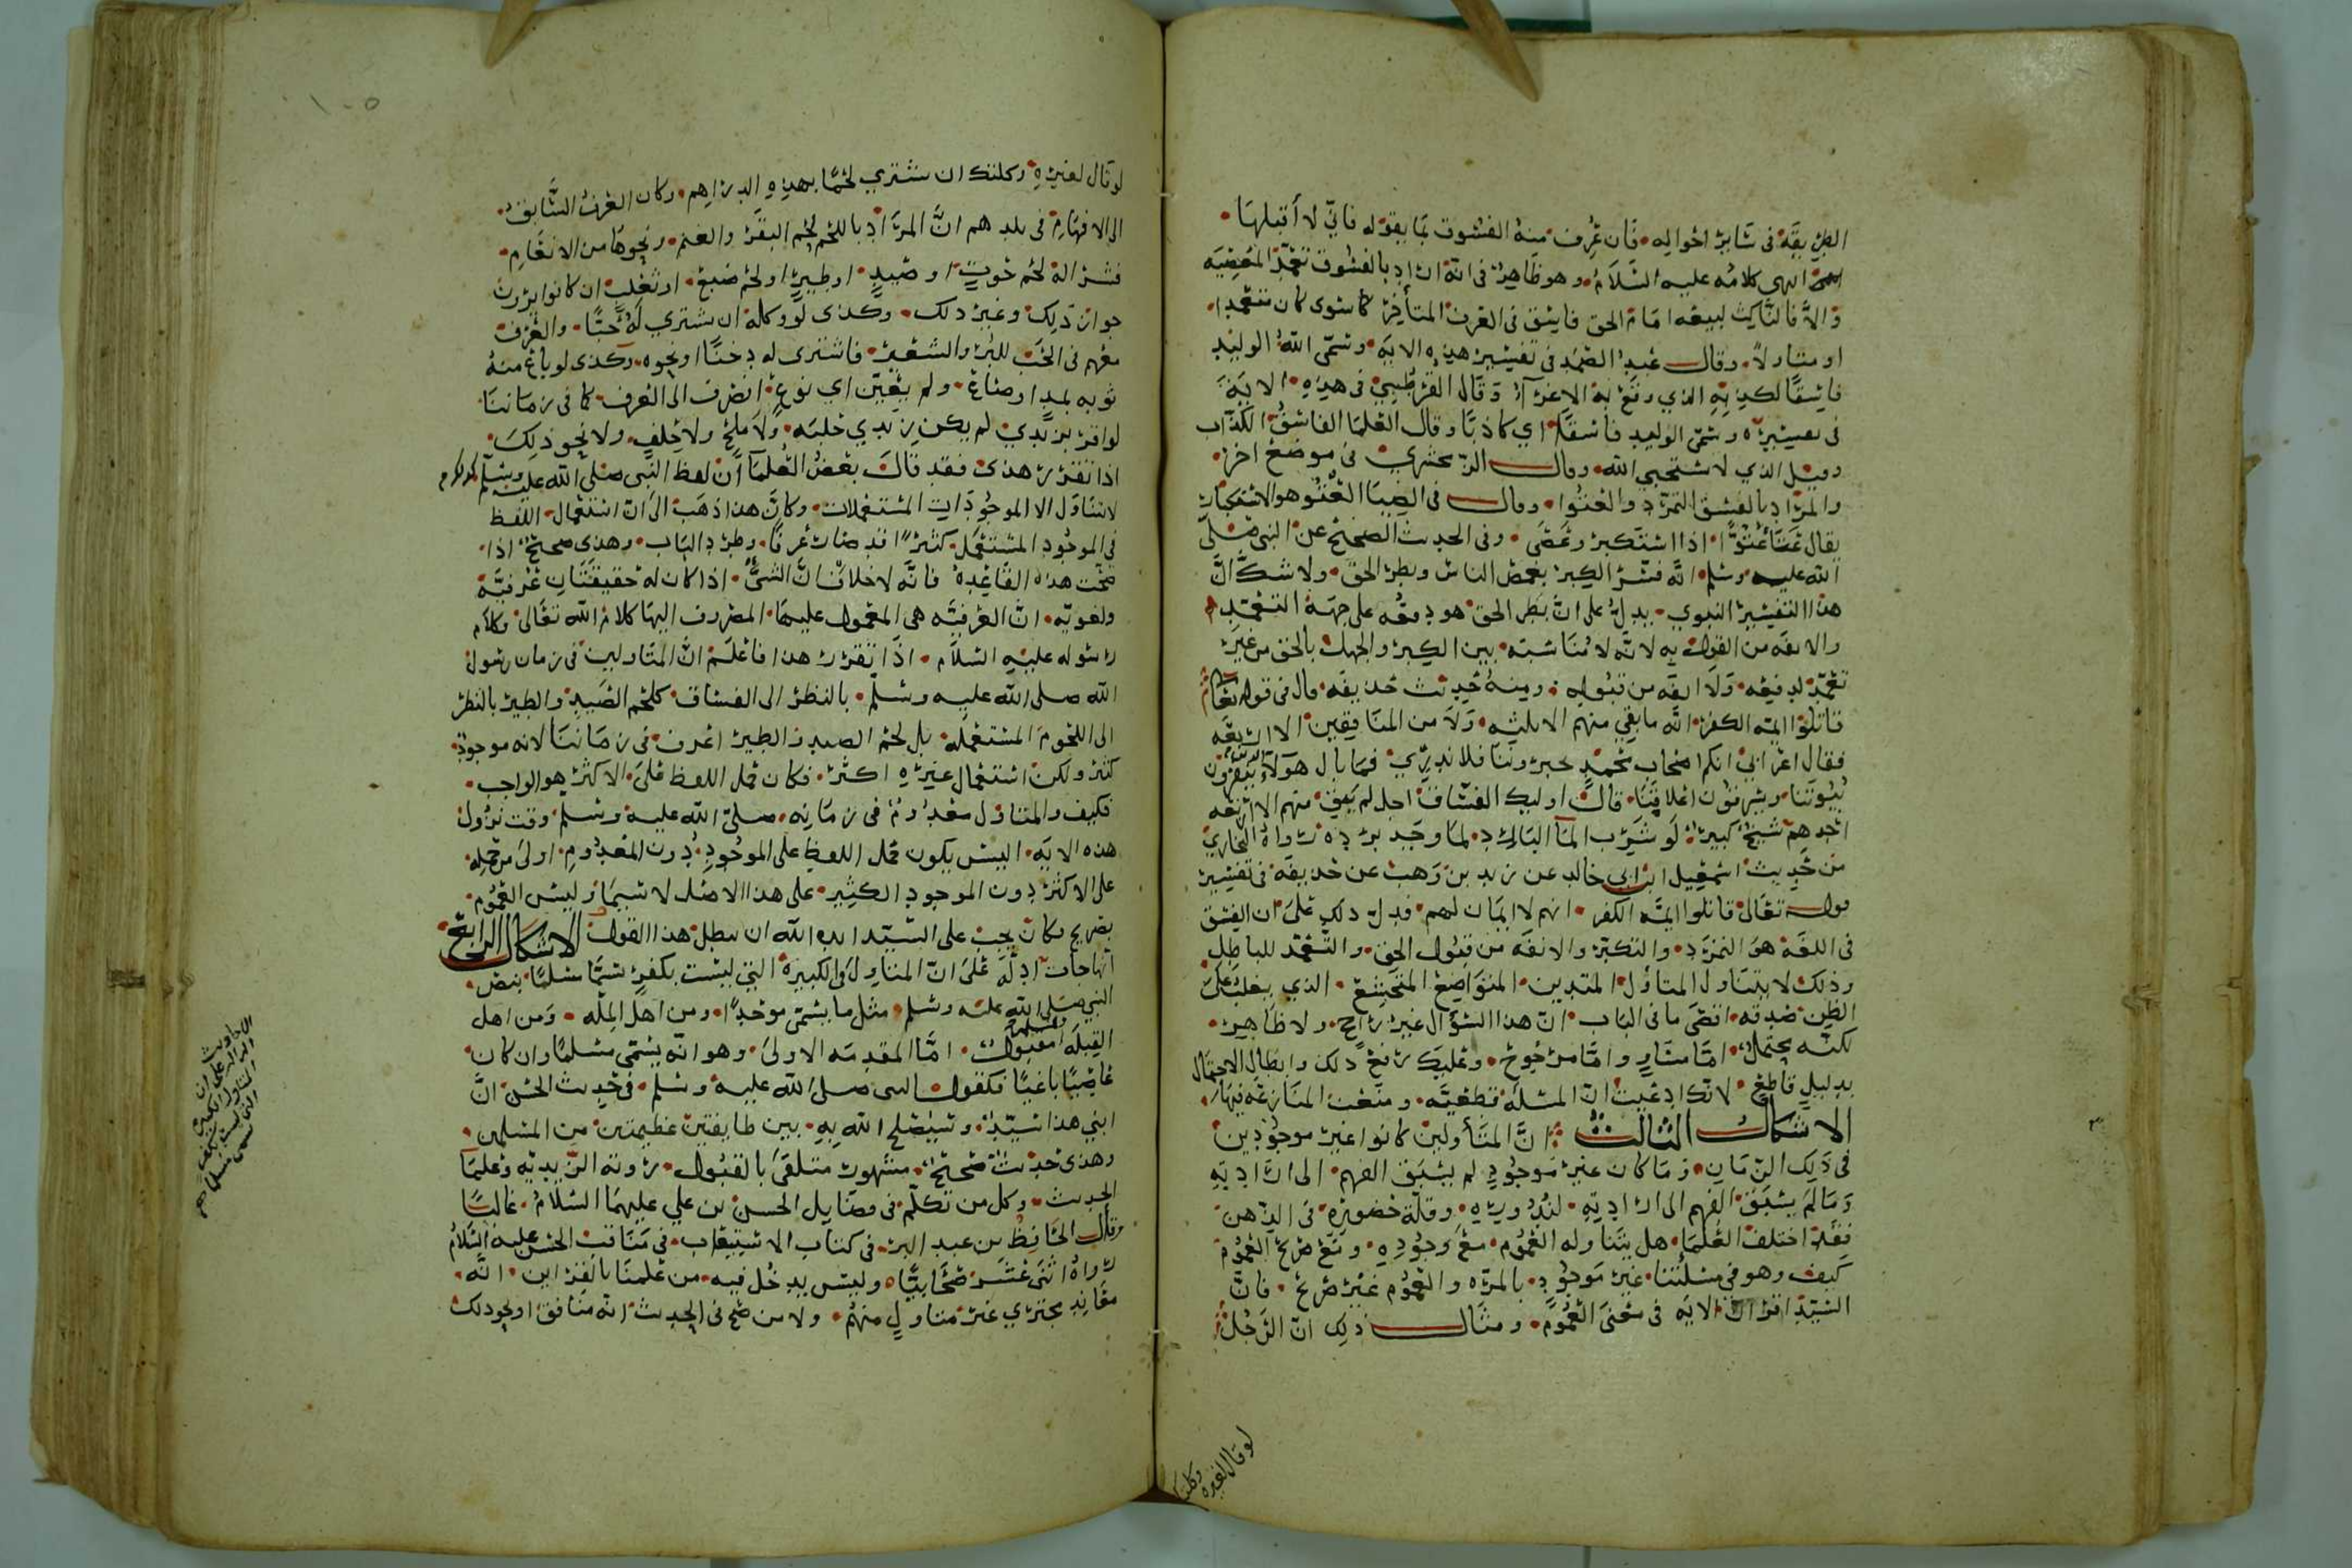 الطريقة في سائر احواله فان عرف منه الفسوق بما يقوله فاني لا أقبلها
انتهى كلامه عليه السلام وهو ظاهر في انه اراد بالفسوق تعمد المعصيه
والا فالناكث لبيعة امام الحق فاسق في العرف المتأخر كما سوى كان متعمدا
او متاولا وقال عبد الصمد في تفسير هذه الايه وسمى الله الوليد
فاسقا لكذبه الذي وقع به الاغراء وقال القرطبي في هذه الاية
في تفسيره وسمى الوليد فاسقا اي كاذبا وقال العلما الفاسق الكذاب
وقيل الذي لا يستحيي الله وقال الزمخشري في موضع اخر
والمراد بالفسق التمرد والعتوا وقال في الضيا العتو هو الاستكبار
يقال عتا عتوا اذا استكبر وعصى وفي الحديث الصحيح عن النبي صلى
الله عليه وسلم انه فسر الكبر بغمص الناس وبطر الحق ولا شك ان
هذا التفسير النبوي يدل على ان بطر الحق هو دفعه على جهة التعمد
والانفه من القول به لانه لا مناسبة بين الكبر والجهل بالحق من غير
تعمد لدفعه ولا انفه من قبوله ومنه حديث حذيفه قال في قوله تعالى
فقاتلوا ائمة الكفر انه ما بقي منهم الا ثلثه ولا من المنافقين الا اربعه
فقال اعرابي انكم اصحاب محمد تخبروننا فلا ندري فما بال هولآء الذين يبقرون
بيوتنا ويسرقون اعلاقنا قال اوليك الفساق اجل لم يبق منهم الا اربعه
احدهم شيخ كبير لو شرب الما البارد لما وجد برده رواه البخاري
من حديث اسمعيل ابن ابي خالد عن زيد بن وهب عن حذيفة في تفسير
قوله تعالى قاتلوا ائمة الكفر انهم لا ايمان لهم فدل ذلك على ان الفسق
في اللغة هو التمرد والتكبر والانفه من قبول الحق والتعمد للباطل
وذلك لا يتناول المتأول المتدين المتواضع المتخشع الذي يغلب على
الظن صدقه اقصى ما في الباب ان هذا السؤال غير راجح ولا ظاهر
لكنه يحتمل اما مساو واما مرجوح وعليك رفع ذلك وابطال الاحتمال
بدليل قاطع لانك ادعيت ان المسلة قطعيه ومنعت المنازعه فيها
الاشكال الثالث ان المتأولين كانوا غير موجودين
في ذلك الزمان وما كان غير موجود لم يسبق الفهم الى ارادته
وما لم يسبق الفهم الى ارادته لندوره وقلة حضوره في الذهن
فقد اختلف العلما هل يتناوله العموم مع وجوده ومع صريح العموم
كيف وهو في مسلتنا غير موجود بالمره والعموم غير صريح فان
السيد اقر ان الايه في معنى العموم ومثال ذلك ان الرجل
لو قال لغيره وكلتك
لو قال لغيره وكلتك ان تشتري لحما بهذه الدراهم وكان العرف السابق
الى الافهام في بلدهم ان المراد باللحم لحم البقر والغنم ونحوها من الانعام
فشرا له لحم حوت او صيد او طير او لحم ضبع او ثعلب ان كانوا يرون
جواز ذلك وغير ذلك وكذى لو وكله ان يشتري له حبا والعرف
معهم في الحب للبر والشعير فاشترى له دخنا او نحوه وكذى لو باع منه
ثوبه بمد او صاع ولم يعين اي نوع انصرف الى العرف كما في زماننا
لو اقر بزبدي لم يكن زبدي حلبه ولا ملح ولا حلف ولا نحو ذلك
اذا تقرر هذى فقد قال بعض العلما ان لفظ النبي صلى الله عليه وسلم
لا يتناول الا الموجودات المستعملات وكان هذا ذهب الى ان استعمال اللفظ
في الموجود المستعمل كثيرا قد صار عرفا وطرد الباب وهذى صحيح اذا
صحت هذه القاعده فانه لا خلاف ان الشي اذا كان له حقيقتان عرفيه
ولغويه ان العرفيه هي المعمول عليها المصروف اليها كلام الله تعالى وكلام
رسوله عليه السلام اذا تقرر هذا فاعلم ان المتاولين في زمان رسول
الله صلى الله عليه وسلم بالنظر الى الفساق كلحم الصيد والطير بالنظر
الى اللحوم المستعمله بل لحم الصيد والطير اعرف في زماننا لانه موجود
كثير ولكن استعمال غيره اكثر فكان حمل اللفظ على الاكثر هو الواجب
فكيف والمتاول معدوم في زمانه صلى الله عليه وسلم وقت نزول
هذه الايه اليس يكون حمل اللفظ على الموجود دون المعدوم اولى من حمله
على الاكثر دون الموجود الكثير على هذا الاصل لا سيما وليس العموم
بصريح وكان يجب على السيد ايده الله ان يبطل هذا القول الاشكال الرابع
انها جات ادلة على ان المتاول والكبيرة التي ليست بكفر سما مسلما بنص
النبي صلى الله عليه وسلم مثل ما يسمى موحدا ومن اهل المله ومن اهل
القبله فنقول اما المقدمه الاولى وهو انه يسمى مسلما وان كان
غاصبا باغيا فلقول النبي صلى الله عليه وسلم في حديث الحسن ان
ابني هذا سيد وسيصلح الله به بين طايفتين عظيمتين من المسلمين
وهذى حديث صحيح مشهور متلقى بالقبول روته الزيديه وعلما
الحديث وكل من تكلم في فضايل الحسن بن علي عليهما السلام غالبا
وقال الحافظ بن عبد البر في كتاب الاستيعاب في مناقب الحسن عليه السلام
رواه اثنى عشر صحابيا وليس يدخل فيه من علمنا بالقراين انه
معاند مجتري غير متاول منهم ولا من صح في الحديث انه منافق او نحو ذلك